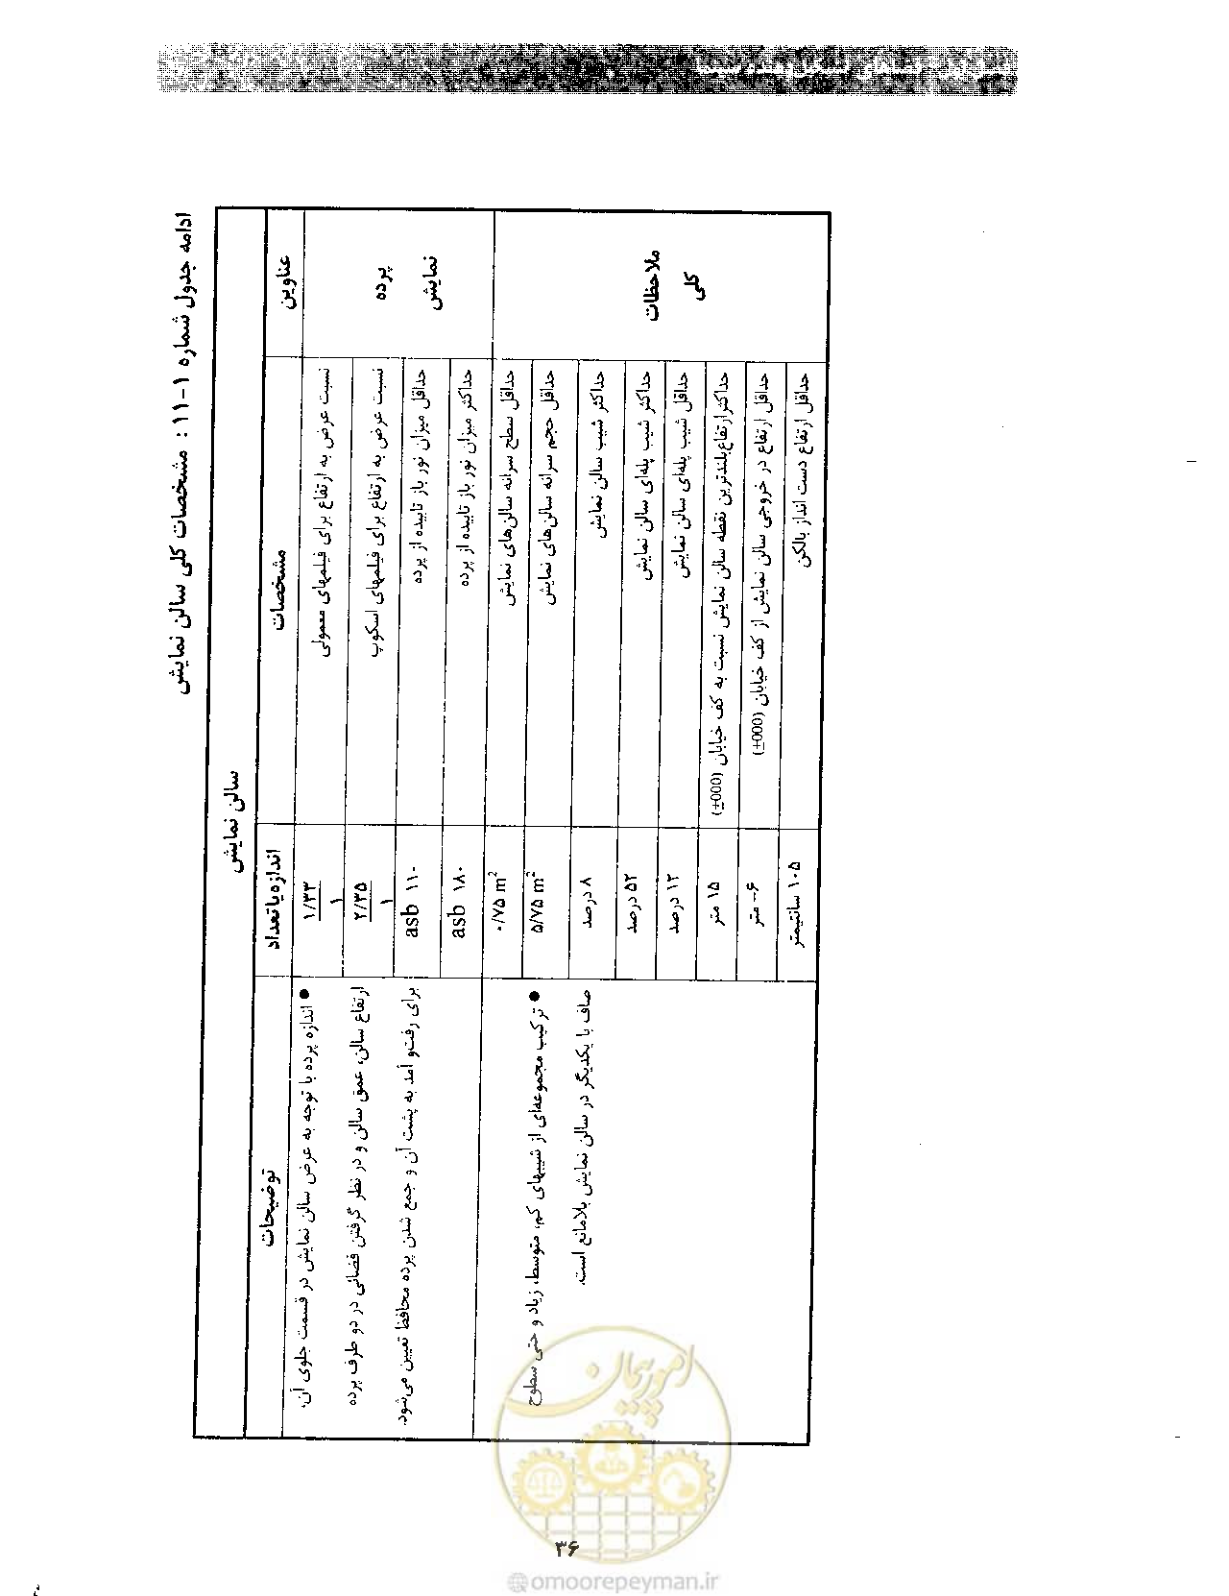 ادامه جدول شماره ۱-۱۱ : مشخصات کلی سالن نمایش
سالن نمایش
عناوین
مشخصات
اندازه یا تعداد
توضیحات
پرده
نمایش
نسبت عرض به ارتفاع برای فیلمهای معمولی
۱/۳۳
۱
نسبت عرض به ارتفاع برای فیلمهای اسکوپ
۲/۳۵
۱
حداقل میزان نور باز تابیده از پرده
۱۱۰ asb
حداکثر میزان نور باز تابیده از پرده
۱۸۰ asb
● اندازه پرده با توجه به عرض سالن نمایش در قسمت جلوی آن،
ارتفاع سالن، عمق سالن و در نظر گرفتن فضائی در دو طرف پرده
برای رفت‌و آمد به پشت آن و جمع شدن پرده محافظ تعیین می‌شود.
ملاحظات
کلی
حداقل سطح سرانه سالن‌های نمایش
۰/۷۵ m²
حداقل حجم سرانه سالن‌های نمایش
۵/۷۵ m²
حداکثر شیب سالن نمایش
۸ درصد
حداکثر شیب پله‌ای سالن نمایش
۵۲ درصد
حداقل شیب پله‌ای سالن نمایش
۱۲ درصد
حداکثر ارتفاع بلندترین نقطه سالن نمایش نسبت به کف خیابان (±000)
۱۵ متر
حداقل ارتفاع در خروجی سالن نمایش از کف خیابان (±000)
۶- متر
حداقل ارتفاع دست انداز بالکن
۱۰۵ سانتیمتر
● ترکیب مجموعه‌ای از شیبهای کم، متوسط، زیاد و حتی سطوح
صاف با یکدیگر در سالن نمایش بلامانع است.
امور پیمان
۳۶
@omoorepeyman.ir